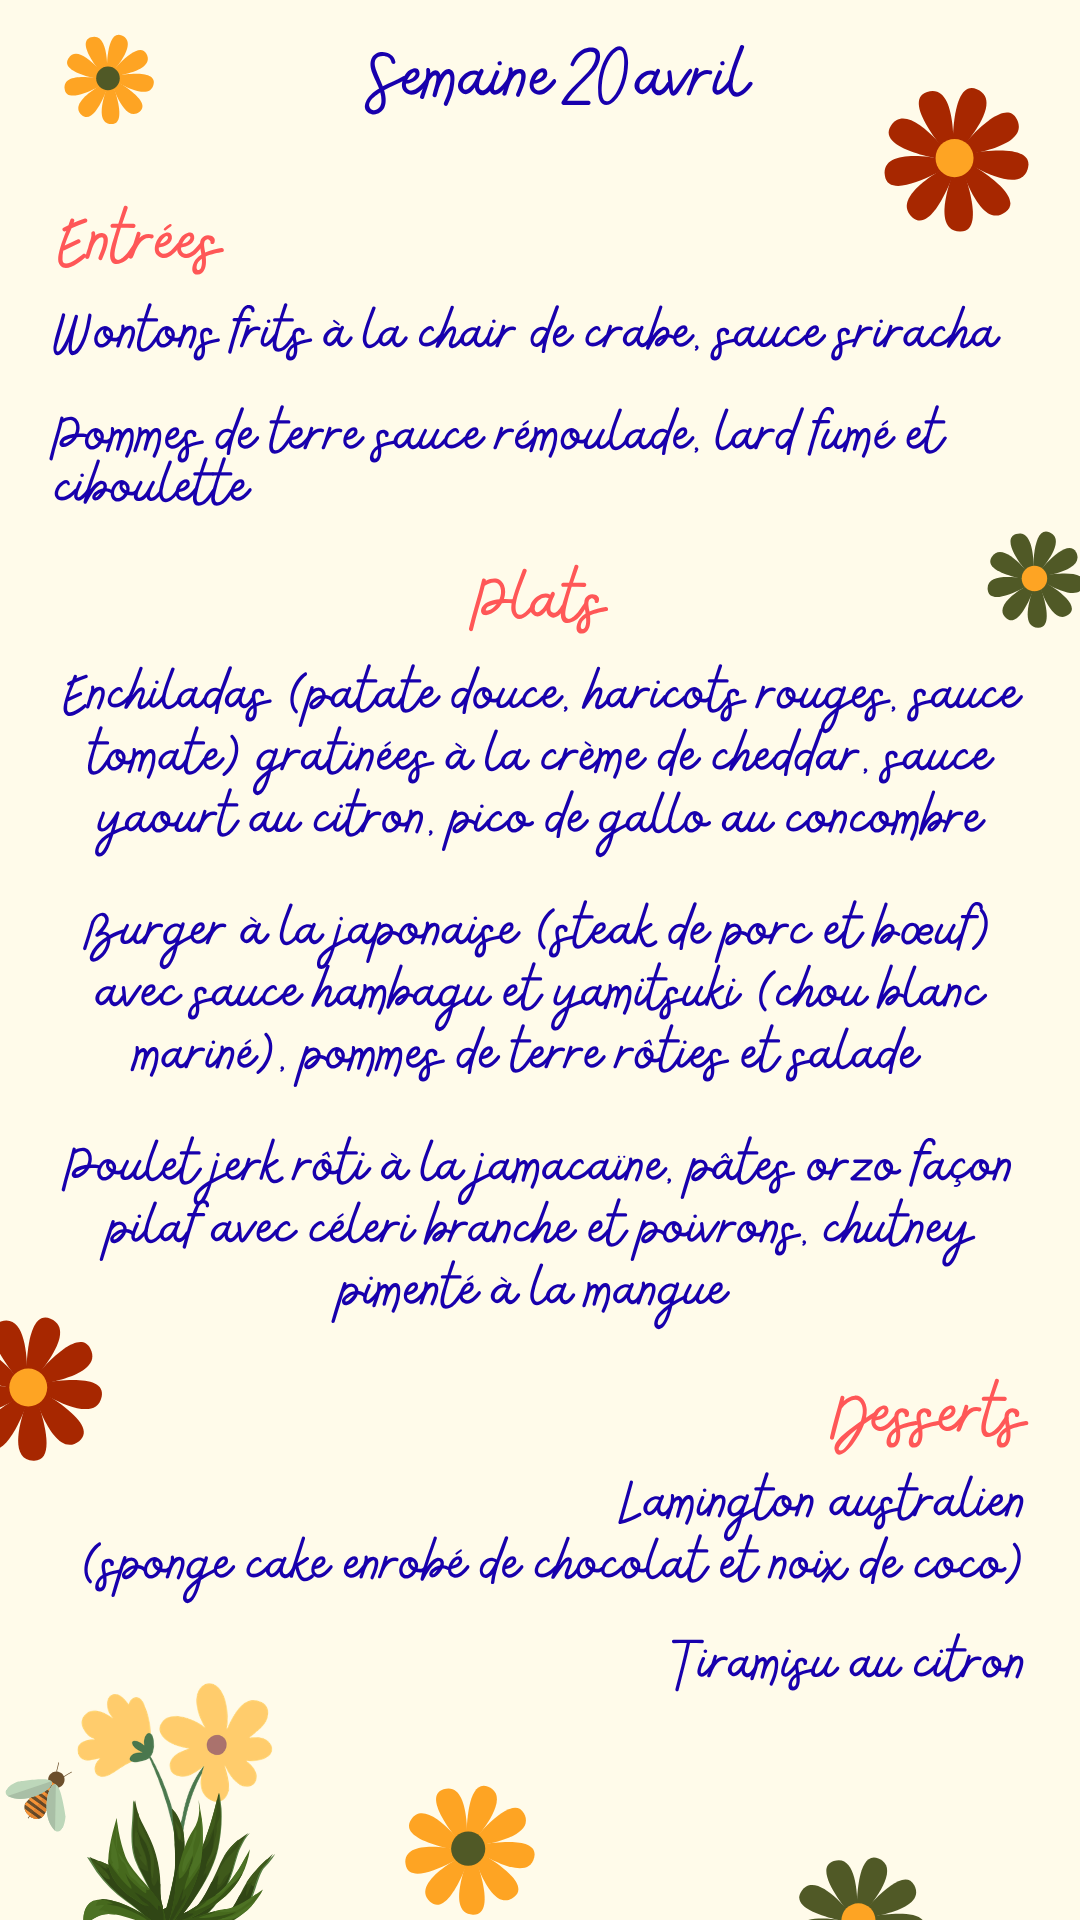 Semaine 20 avril
Entrées
Wontons frits à la chair de crabe, sauce sriracha
Pommes de terre sauce rémoulade, lard fumé et
ciboulette
Plats
Enchiladas (patate douce, haricots rouges, sauce
tomate) gratinées à la crème de cheddar, sauce
yaourt au citron, pico de gallo au concombre
Burger à la japonaise (steak de porc et bœuf)
avec sauce hambagu et yamitsuki (chou blanc
mariné), pommes de terre rôties et salade
Poulet jerk rôti à la jamacaïne, pâtes orzo façon
pilaf avec céleri branche et poivrons, chutney
pimenté à la mangue
Desserts
Lamington australien
(sponge cake enrobé de chocolat et noix de coco)
Tiramisu au citron